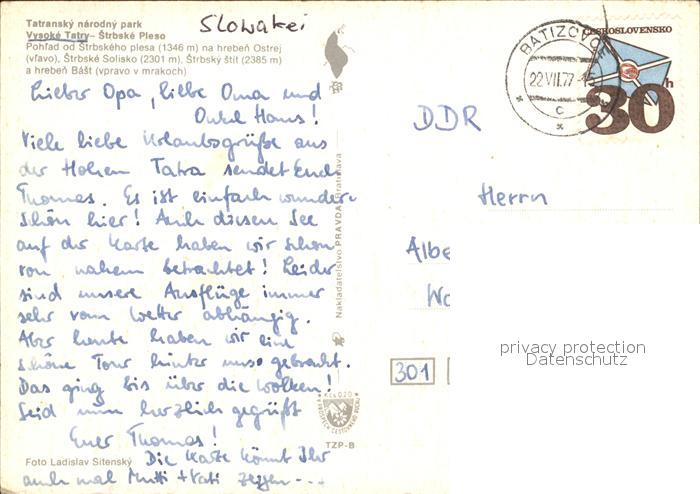 Slowakei
Tatranský národný park
Vysoké Tatry – Štrbské Pleso
Pohľad od Štrbského plesa (1346 m) na hrebeň Ostrej
(vľavo), Štrbské Solisko (2301 m), Štrbský štít (2385 m)
a hrebeň Bášt (vpravo v mrakoch)
Lieber Opa, liebe Oma und
Onkel Hans!
Viele liebe Urlaubsgrüße aus
der Hohen Tatra sendet Euch
Thomas. Es ist einfach wunder-
schön hier! Auch diesen See
auf der Karte haben wir schon
von nahem betrachtet! Leider
sind unsere Ausflüge immer
sehr vom Wetter abhängig.
Aber heute haben wir eine
schöne Tour hinter uns gebracht.
Das ging bis über die Wolken!
Seid nun herzlich gegrüßt
Euer Thomas!
Die Karte könnt Ihr
auch mal Mutti + Vati zeigen---
Foto Ladislav Sitenský
Nakladateľstvo PRAVDA Bratislava
Kčs 0,20
TZP-B
BATIZOVCE
22.VII.77-15
C
ČESKOSLOVENSKO
30h
DDR
Herrn
Albe
Wo
301
privacy protection
Datenschutz